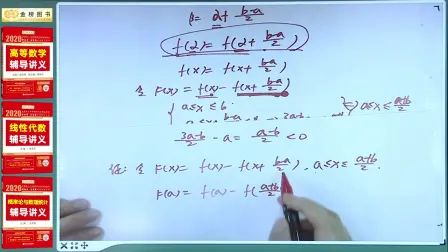 金榜图书
2020
高等数学
辅导讲义
2020
线性代数
辅导讲义
2020
概率论与数理统计
辅导讲义
β = α + (b-a)/2
f(2) = f(2 + (b-a)/2)
f(x) = f(x + (b-a)/2)
令 F(x) = f(x) - f(x + (b-a)/2)
a ≤ x ≤ b
⇔ a ≤ x ≤ (a+b)/2
(3a-b)/2 - a = (a-b)/2 < 0
证: 令 F(x) = f(x) - f(x + (b-a)/2), a ≤ x ≤ (a+b)/2.
F(a) = f(a) - f((a+b)/2